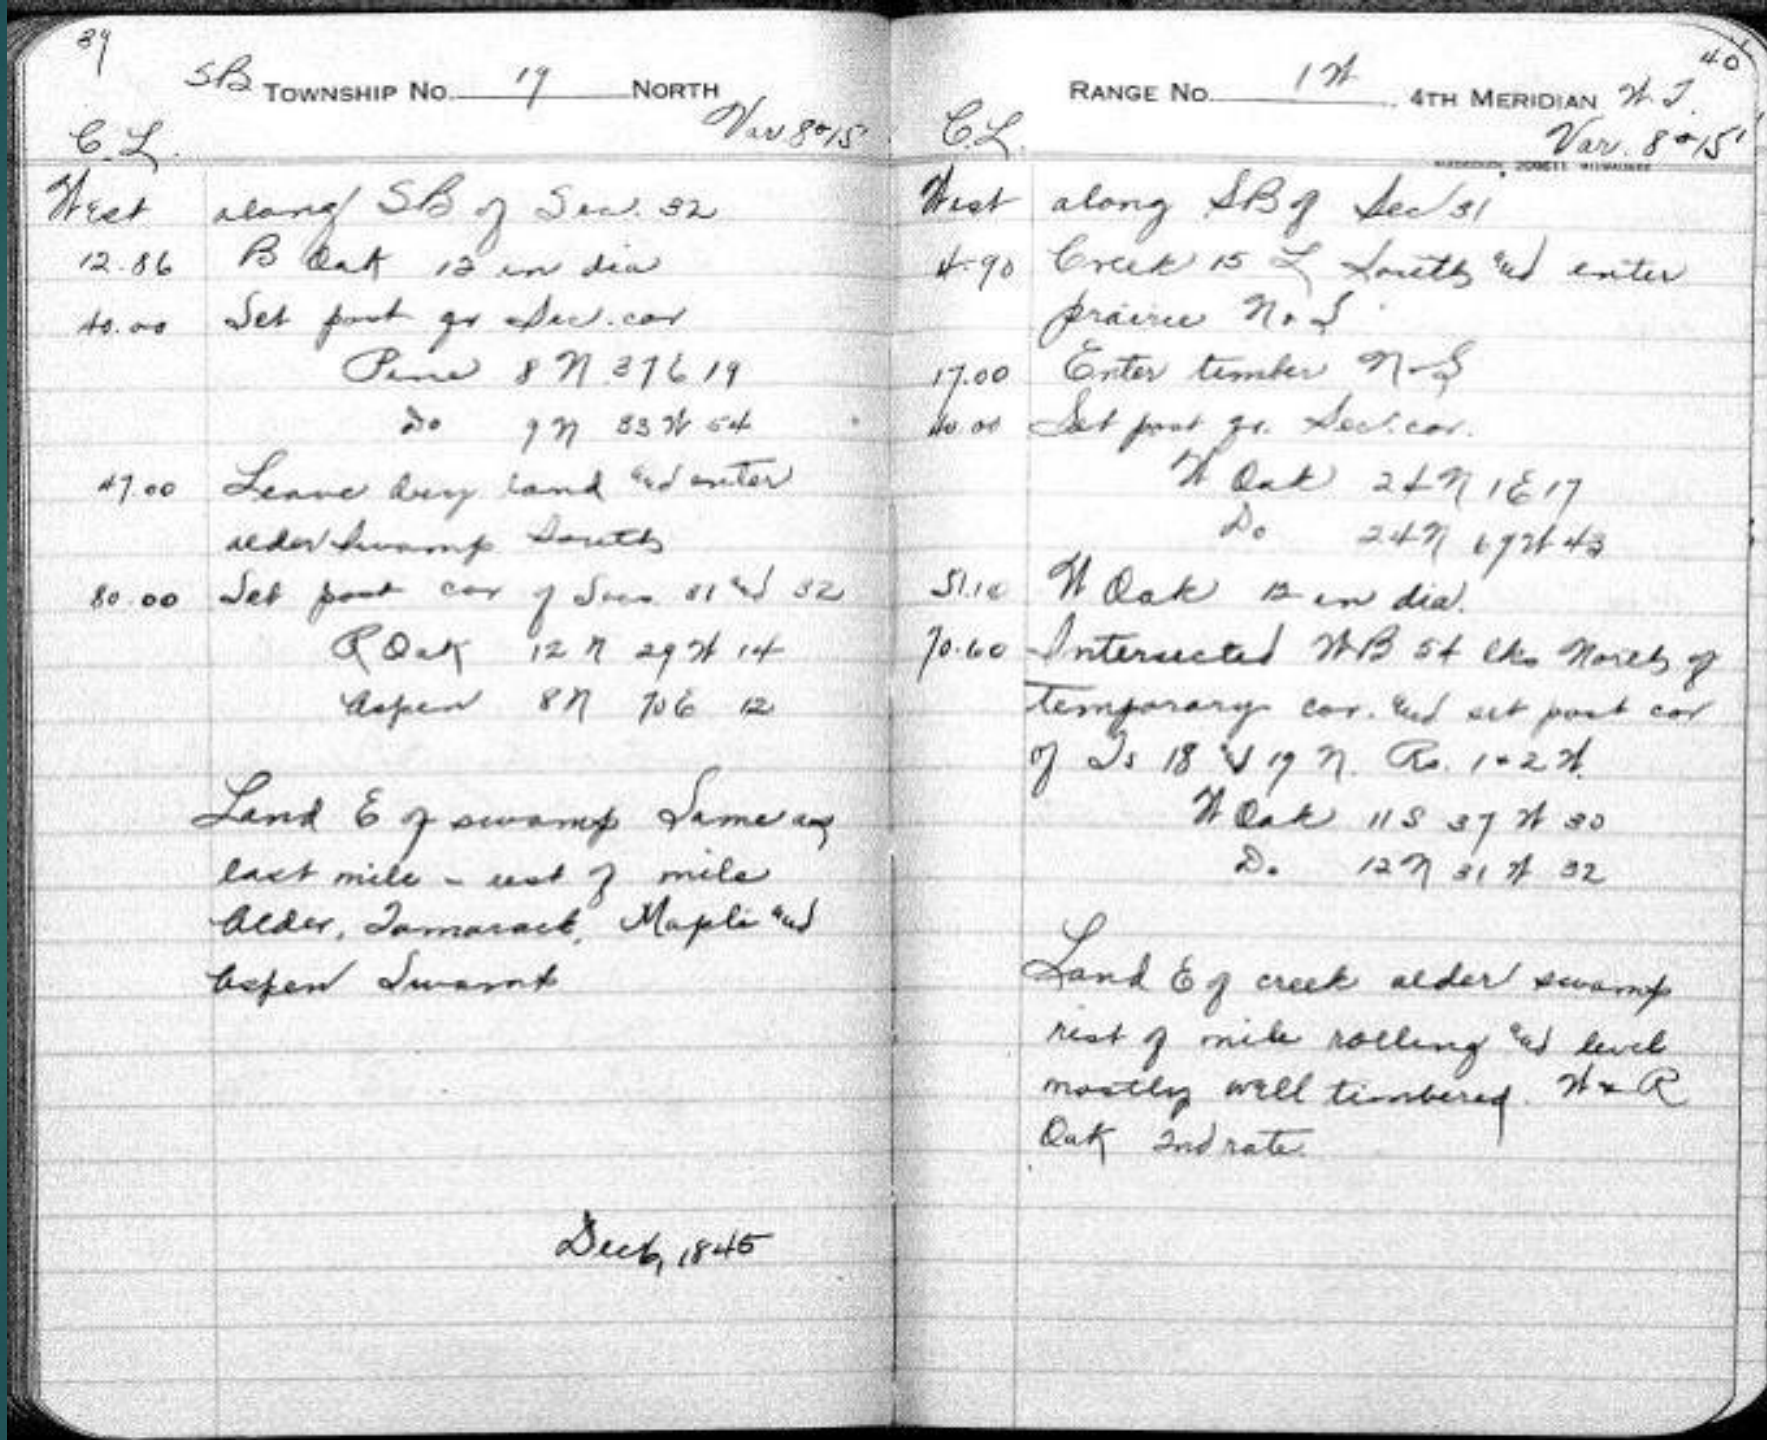 39
SB TOWNSHIP No. 19 NORTH
C. L. Var 8°15'
West along SB of Sec. 32
12.86 B Oak 12 in dia
40.00 Set post qr Sec. cor
Pine 8 N 37 E 19
Do 9 N 33 W 54
47.00 Leave dry land and enter
alder swamp South
80.00 Set post cor of Secs. 31 and 32
R Oak 12 N 29 W 14
Aspen 8 N 70 E 12
Land E of swamp Same as
last mile - rest of mile
Alder, Tamarack, Maple and
Aspen Swamp
Dec 6, 1845
40
RANGE No. 1 W 4TH MERIDIAN W. T.
C. L. Var. 8°15'
West along SB of Sec 31
4.90 Creek 15 L South and enter
prairie N & S
17.00 Enter timber N & S
40.00 Set post qr. Sec. cor.
W Oak 24 N 1 E 17
Do 24 N 69 W 43
51.10 W Oak 12 in dia.
70.60 Intersected WB 54 lks North of
temporary cor. and set post cor
of Ts 18 and 19 N. Rs. 1 & 2 W.
W Oak 11 S 37 W 30
Do. 12 N 31 W 32
Land E of creek alder swamp
rest of mile rolling and level
mostly well timbered. W & R
Oak 2nd rate.